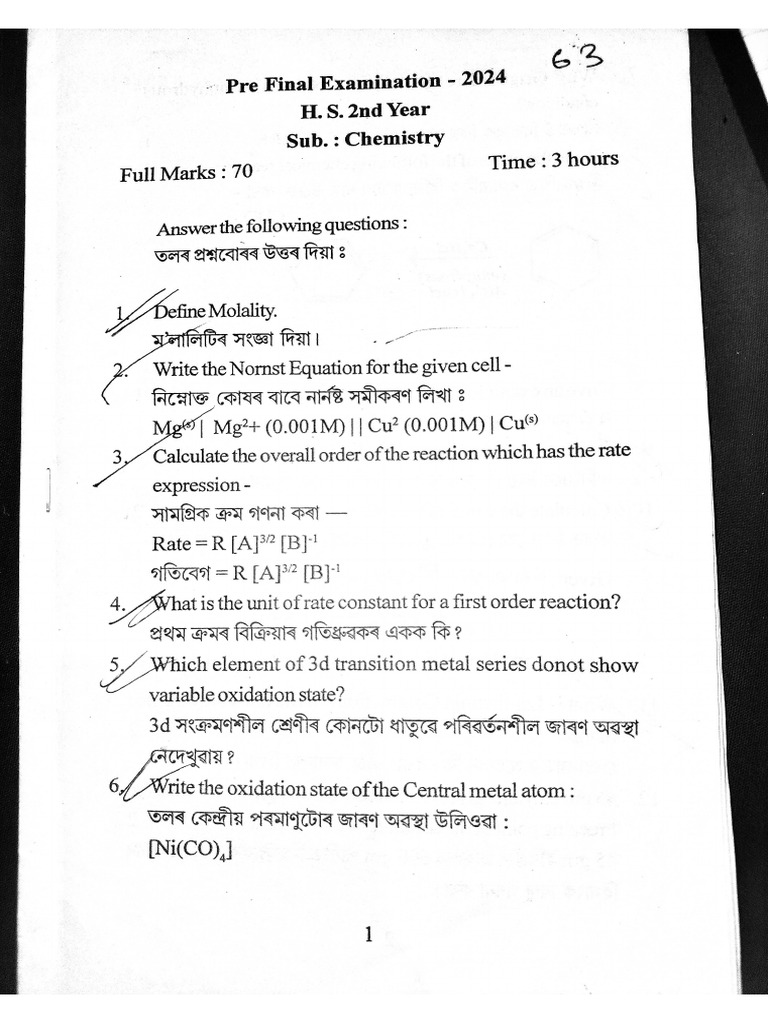 63
Pre Final Examination - 2024
H. S. 2nd Year
Sub. : Chemistry
Full Marks : 70 Time : 3 hours
Answer the following questions :
তলৰ প্ৰশ্নবোৰৰ উত্তৰ দিয়া ঃ
1. Define Molality.
ম'লালিটিৰ সংজ্ঞা দিয়া।
2. Write the Nornst Equation for the given cell -
নিম্নোক্ত কোষৰ বাবে নাৰ্নষ্ট সমীকৰণ লিখা ঃ
Mg⁽ˢ⁾ | Mg²+ (0.001M) | | Cu² (0.001M) | Cu⁽ˢ⁾
3. Calculate the overall order of the reaction which has the rate
expression -
সামগ্ৰিক ক্ৰম গণনা কৰা —
Rate = R [A]³ᐟ² [B]⁻¹
গতিবেগ = R [A]³ᐟ² [B]⁻¹
4. What is the unit of rate constant for a first order reaction?
প্ৰথম ক্ৰমৰ বিক্ৰিয়াৰ গতিধ্ৰুৱকৰ একক কি ?
5. Which element of 3d transition metal series donot show
variable oxidation state?
3d সংক্ৰমণশীল শ্ৰেণীৰ কোনটো ধাতুৱে পৰিৱৰ্তনশীল জাৰণ অৱস্থা
নেদেখুৱায় ?
6. Write the oxidation state of the Central metal atom :
তলৰ কেন্দ্ৰীয় পৰমাণুটোৰ জাৰণ অৱস্থা উলিওৱা :
[Ni(CO)₄]
1